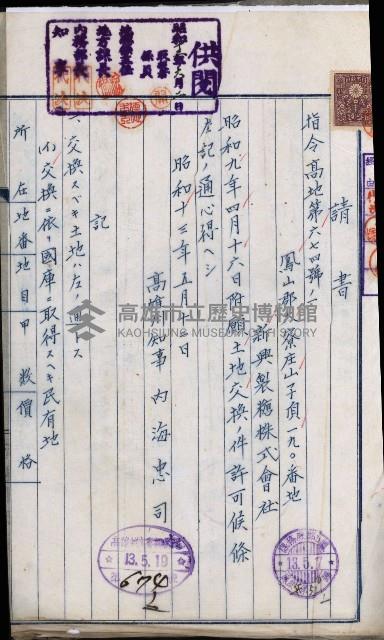 請書
指令高地第六七四號ノ一
鳳山郡小寮庄山子頂一九〇番地
新興製糖株式會社
昭和九年四月十六日附願土地交換ノ件許可候條
左記ノ通心得ヘシ
昭和十三年五月十七日
高雄州知事 內海忠司
記
一、交換スベキ土地ハ左ノ通トス
(イ)交換ニ依リ國庫ニ取得スベキ民有地
所在地番地目甲數價格
供閱
高雄市立歷史博物館
KAOHSIUNG MUSEUM OF HISTORY
13.5.19
674
13.5.17